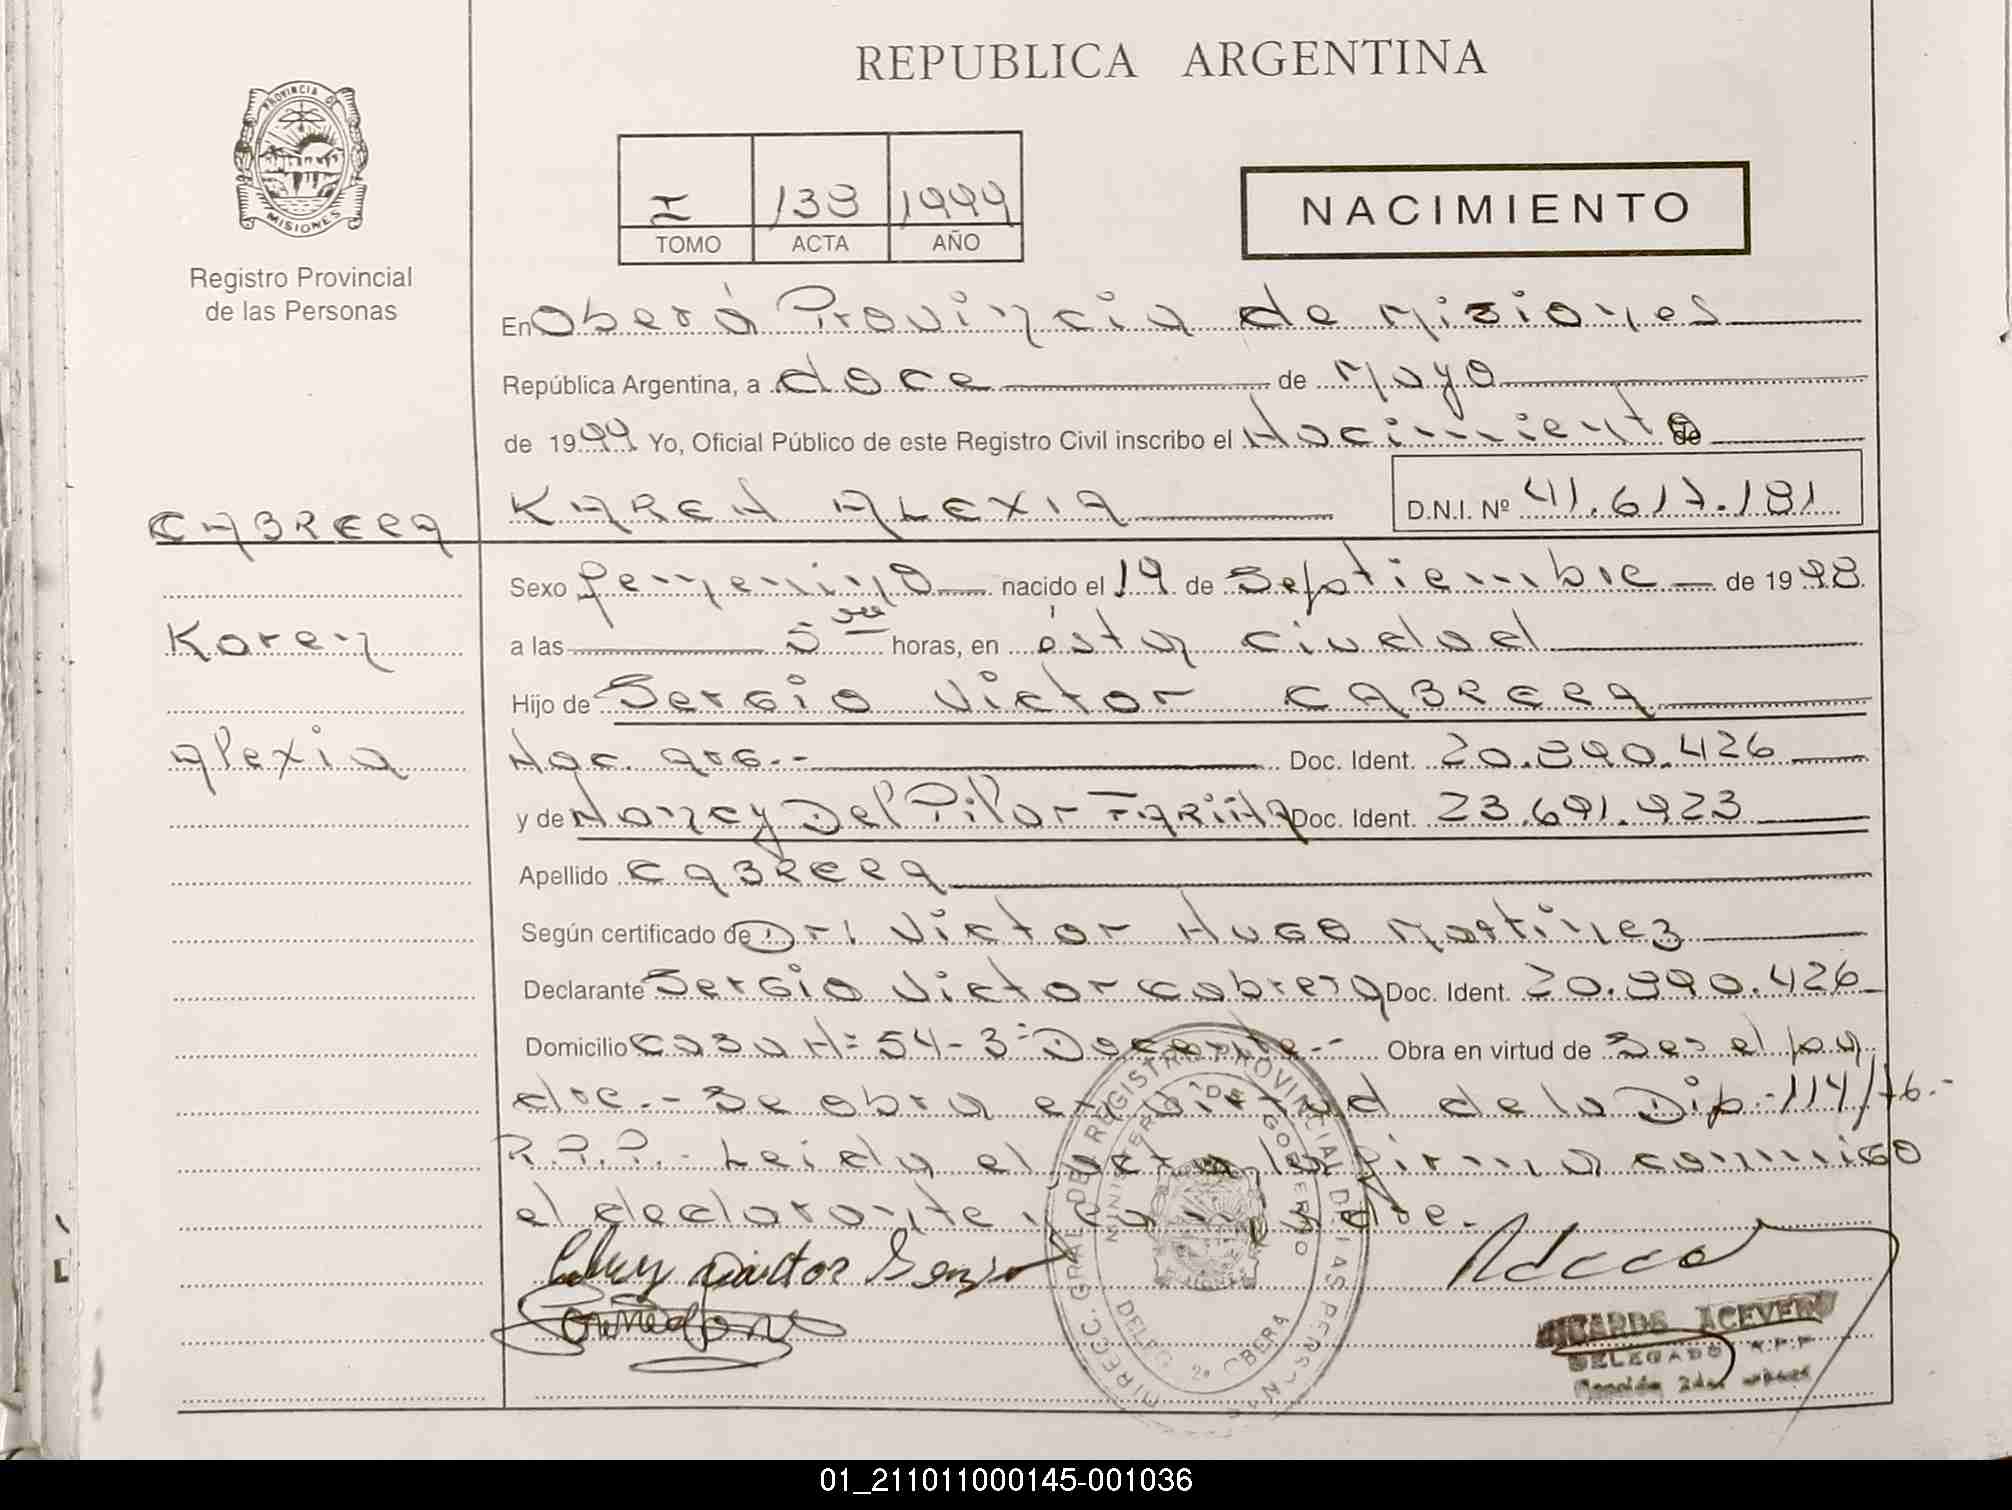 REPUBLICA ARGENTINA
PROVINCIA DE
MISIONES
Registro Provincial
de las Personas
I 138 1999
TOMO ACTA AÑO
NACIMIENTO
En Oberá Provincia de Misiones
República Argentina, a doce de Mayo
de 1999 Yo, Oficial Público de este Registro Civil inscribo el Nacimiento de
CABRERA
KAREN ALEXIA D.N.I. Nº 41.617.181
Sexo femenino nacido el 19 de Septiembre de 1998
Karen
a las 5 horas, en ésta ciudad
Hijo de Sergio Victor CABRERA
Alexia
Nac. arg.-- Doc. Ident. 20.890.426
y de Nancy Del Pilar FARIÑA Doc. Ident. 23.691.923
Apellido CABRERA
Según certificado de Dr. Victor Hugo Martinez
Declarante Sergio Victor Cabrera Doc. Ident. 20.890.426
Domicilio Casa N= 54-3= Docente-- Obra en virtud de Ser el pa
dre.- Se obra en virtud de la Dip.-114/76.-
R.P.P.- Leida el acta la firma conmigo
el declarante y la madre.
Victor
DIRECC. GRAL. DEL REGISTRO PROVINCIAL DE LAS PERSONAS
MINISTERIO DE GOBIERNO
DELEG. 2ª OBERA
RICARDO ACEVEDO
DELEGADO R.P.P.
01_211011000145-001036